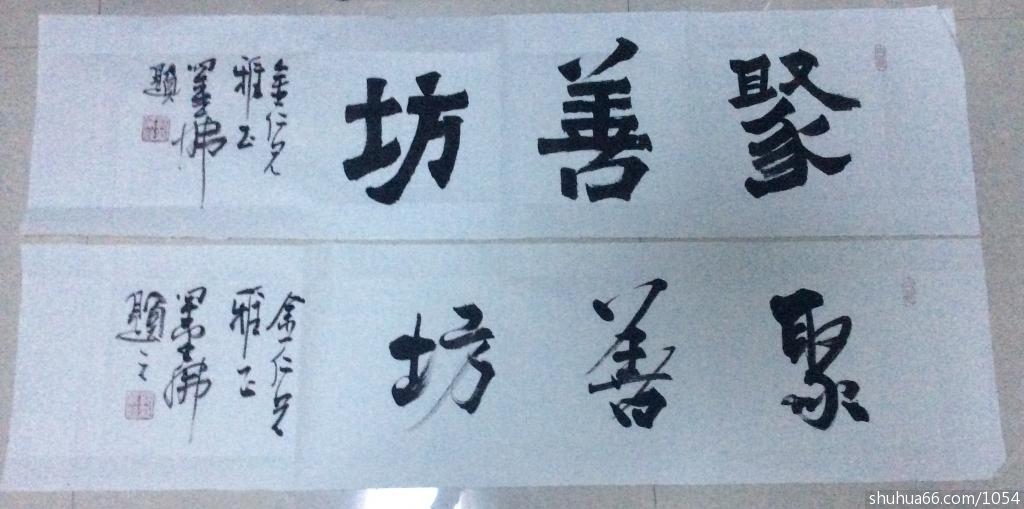 聚善坊
仁兄
雅正
墨佛
題
聚善坊
仁兄
雅正
墨佛
題之
shuhua66.com/1054